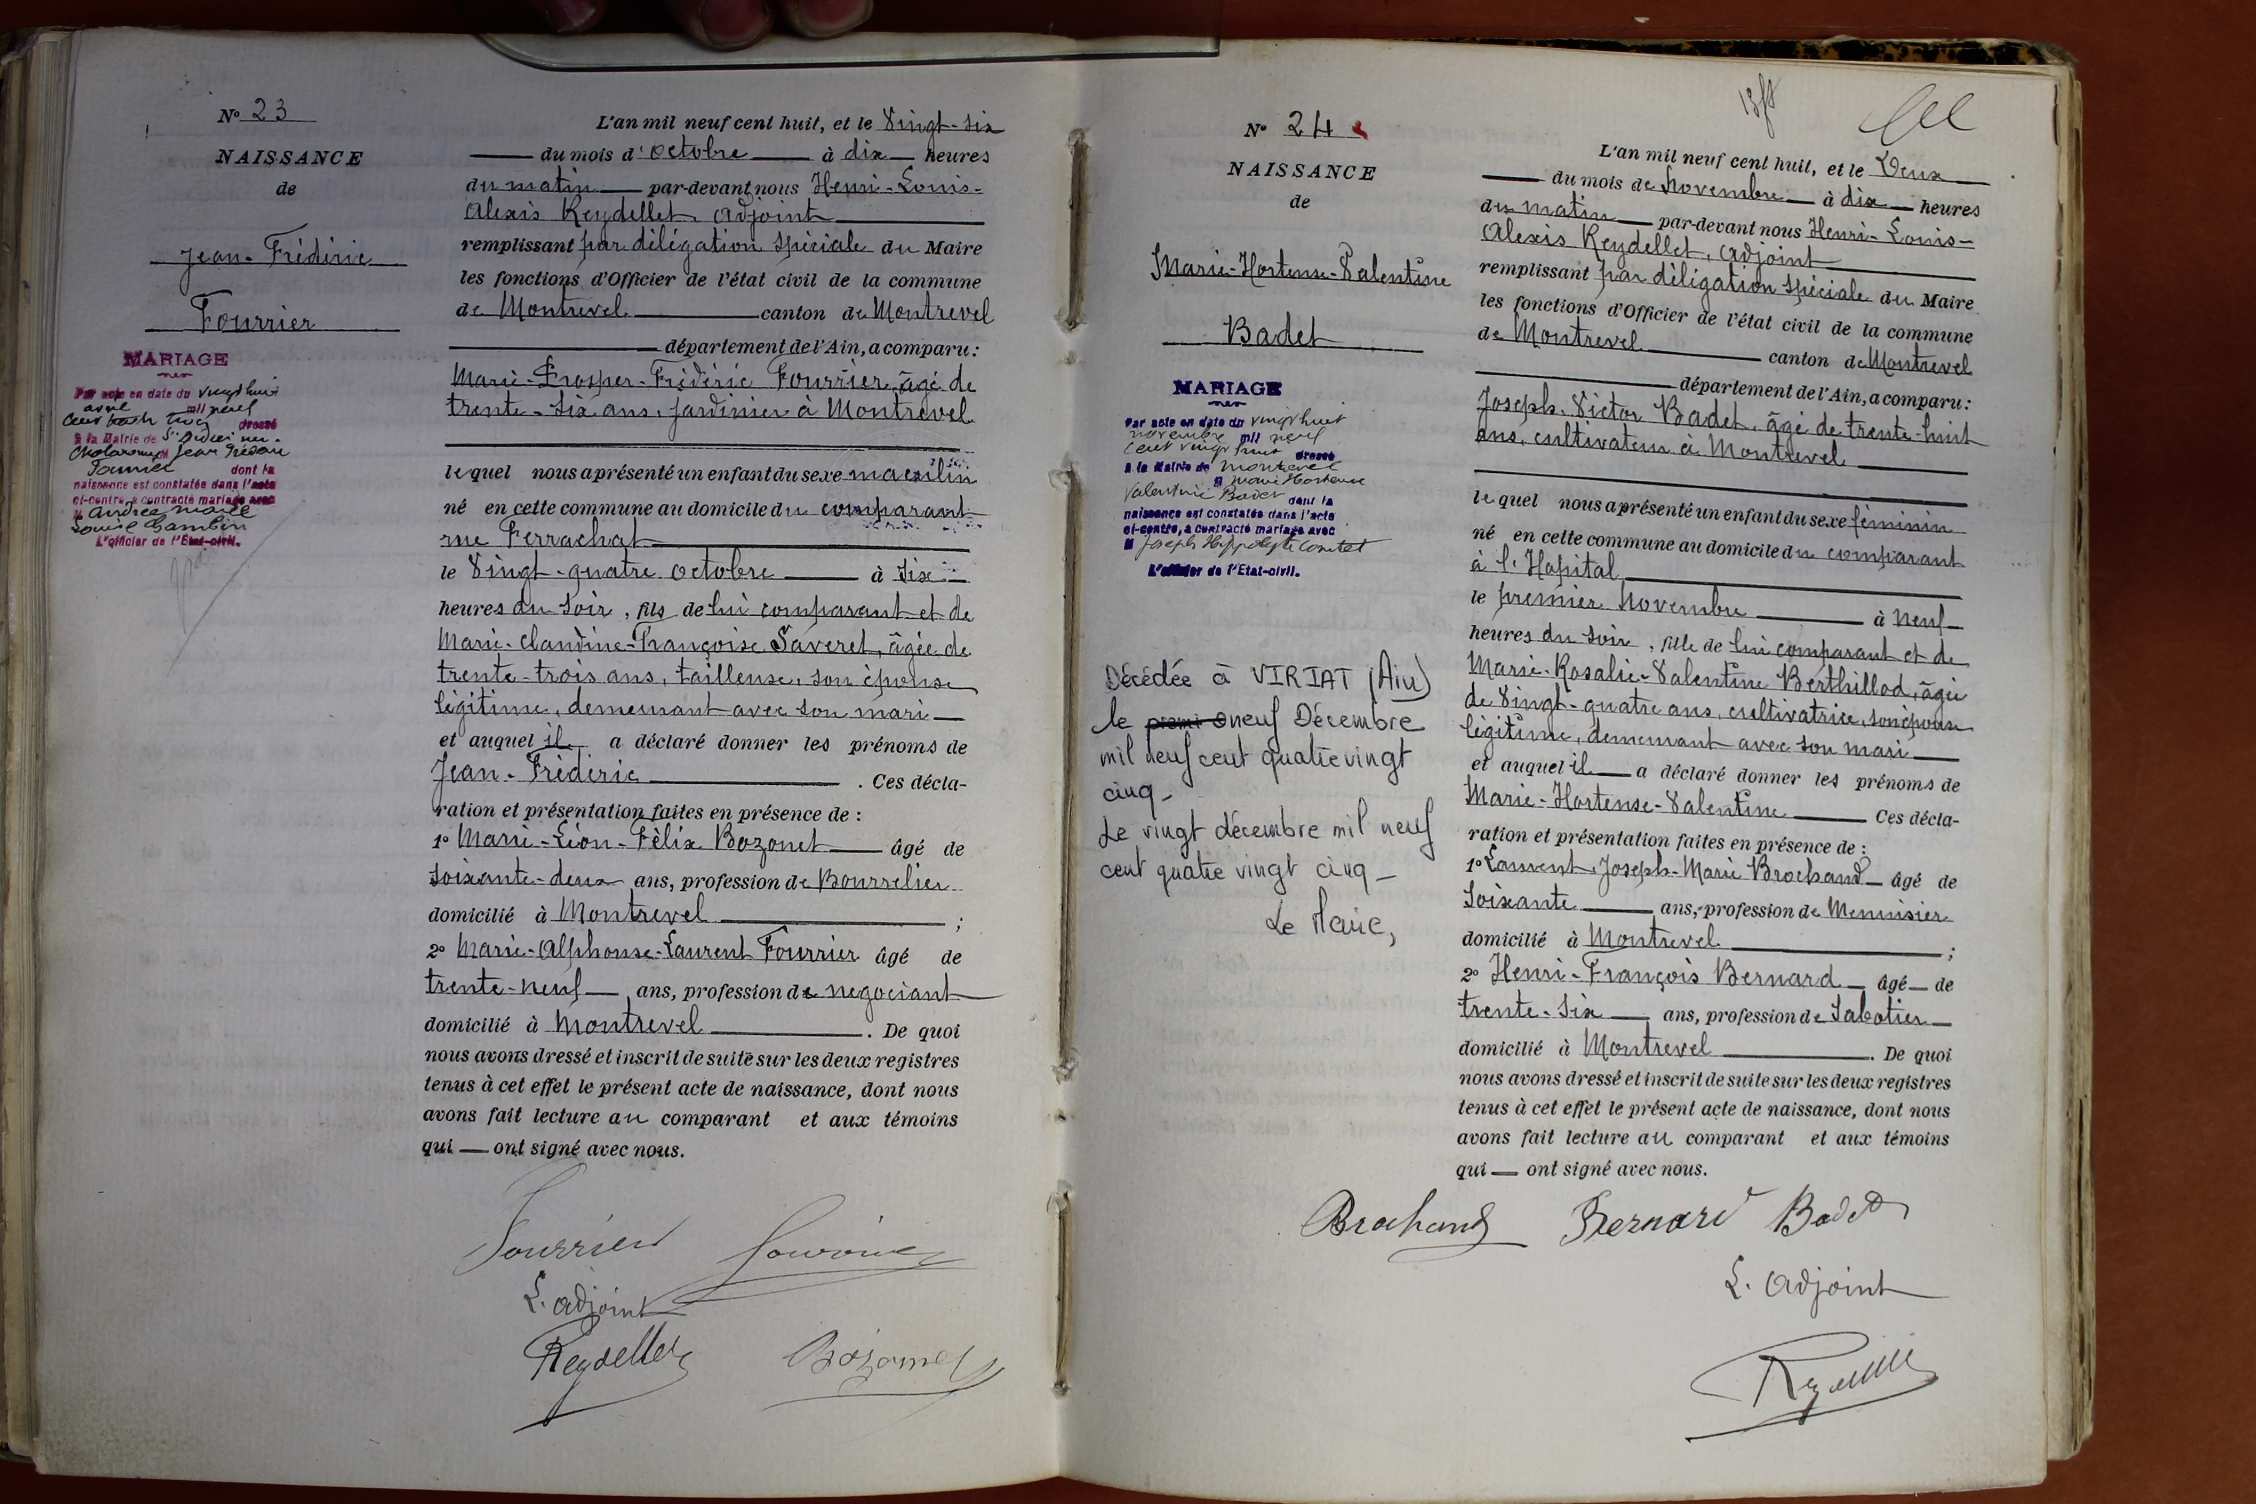 N° 23
NAISSANCE
de
Jean-Frédéric
Fourrier
MARIAGE
Par acte en date du vingt huit
avril mil neuf
cent trente trois dressé
à la Mairie de St Didier au
Jean Frédéric
Fourrier dont la
naissance est constatée dans l'acte
ci-contre, a contracté mariage avec
M Andrée Marie
Louise Gambin
L'officier de l'Etat-civil.
L'an mil neuf cent huit, et le Vingt-six
du mois d'octobre à dix heures
du matin par-devant nous Henri-Louis-
Alexis Reydellet, adjoint
remplissant par délégation spéciale du Maire
les fonctions d'Officier de l'état civil de la commune
de Montrevel canton de Montrevel
département de l'Ain, a comparu :
Marie-Prosper-Frédéric Fourrier, âgé de
trente-six ans, jardinier à Montrevel
lequel nous a présenté un enfant du sexe masculin
né en cette commune au domicile du comparant
rue Ferrachat
le Vingt-quatre octobre à six
heures du soir, fils de lui comparant et de
Marie-Claudine-Françoise Saveret, âgée de
trente-trois ans, tailleuse, son épouse
légitime, demeurant avec son mari
et auquel il a déclaré donner les prénoms de
Jean-Frédéric . Ces décla-
ration et présentation faites en présence de :
1° Marie-Léon-Félix Bozonet âgé de
soixante-deux ans, profession de Bourrelier
domicilié à Montrevel ;
2° Marie-Alphonse-Laurent Fourrier âgé de
trente-neuf ans, profession de négociant
domicilié à Montrevel . De quoi
nous avons dressé et inscrit de suite sur les deux registres
tenus à cet effet le présent acte de naissance, dont nous
avons fait lecture au comparant et aux témoins
qui ont signé avec nous.
Fourrier Fourrier
L. adjoint
Reydellet Bozonet
N° 24
NAISSANCE
de
Marie-Hortense-Valentine
Badet
MARIAGE
Par acte en date du vingt huit
novembre mil neuf
cent vingt huit dressé
à la Mairie de Montrevel
M Marie Hortense
Valentine Badet dont la
naissance est constatée dans l'acte
ci-contre, a contracté mariage avec
M Joseph Hippolyte Comtet
L'officier de l'Etat-civil.
Décédée à VIRIAT (Ain)
le neuf Décembre
mil neuf cent quatre vingt
cinq-
Le vingt décembre mil neuf
cent quatre vingt cinq-
Le Maire,
L'an mil neuf cent huit, et le Deux
du mois de novembre à dix heures
du matin par-devant nous Henri-Louis-
Alexis Reydellet, adjoint
remplissant par délégation spéciale du Maire
les fonctions d'Officier de l'état civil de la commune
de Montrevel canton de Montrevel
département de l'Ain, a comparu :
Joseph-Victor Badet, âgé de trente-huit
ans, cultivateur à Montrevel
lequel nous a présenté un enfant du sexe féminin
né en cette commune au domicile du comparant
à l'Hopital
le premier novembre à neuf
heures du soir, fille de lui comparant et de
Marie-Rosalie-Valentine Berthillod, âgée
de Vingt-quatre ans, cultivatrice, son épouse
légitime, demeurant avec son mari
et auquel il a déclaré donner les prénoms de
Marie-Hortense-Valentine Ces décla-
ration et présentation faites en présence de :
1° Laurent-Joseph-Marie Brochand âgé de
soixante ans, profession de Menuisier
domicilié à Montrevel ;
2° Henri-François Bernard âgé de
trente-six ans, profession de Sabotier
domicilié à Montrevel . De quoi
nous avons dressé et inscrit de suite sur les deux registres
tenus à cet effet le présent acte de naissance, dont nous
avons fait lecture au comparant et aux témoins
qui ont signé avec nous.
Brochand Bernard Badet
L. adjoint
Reydellet